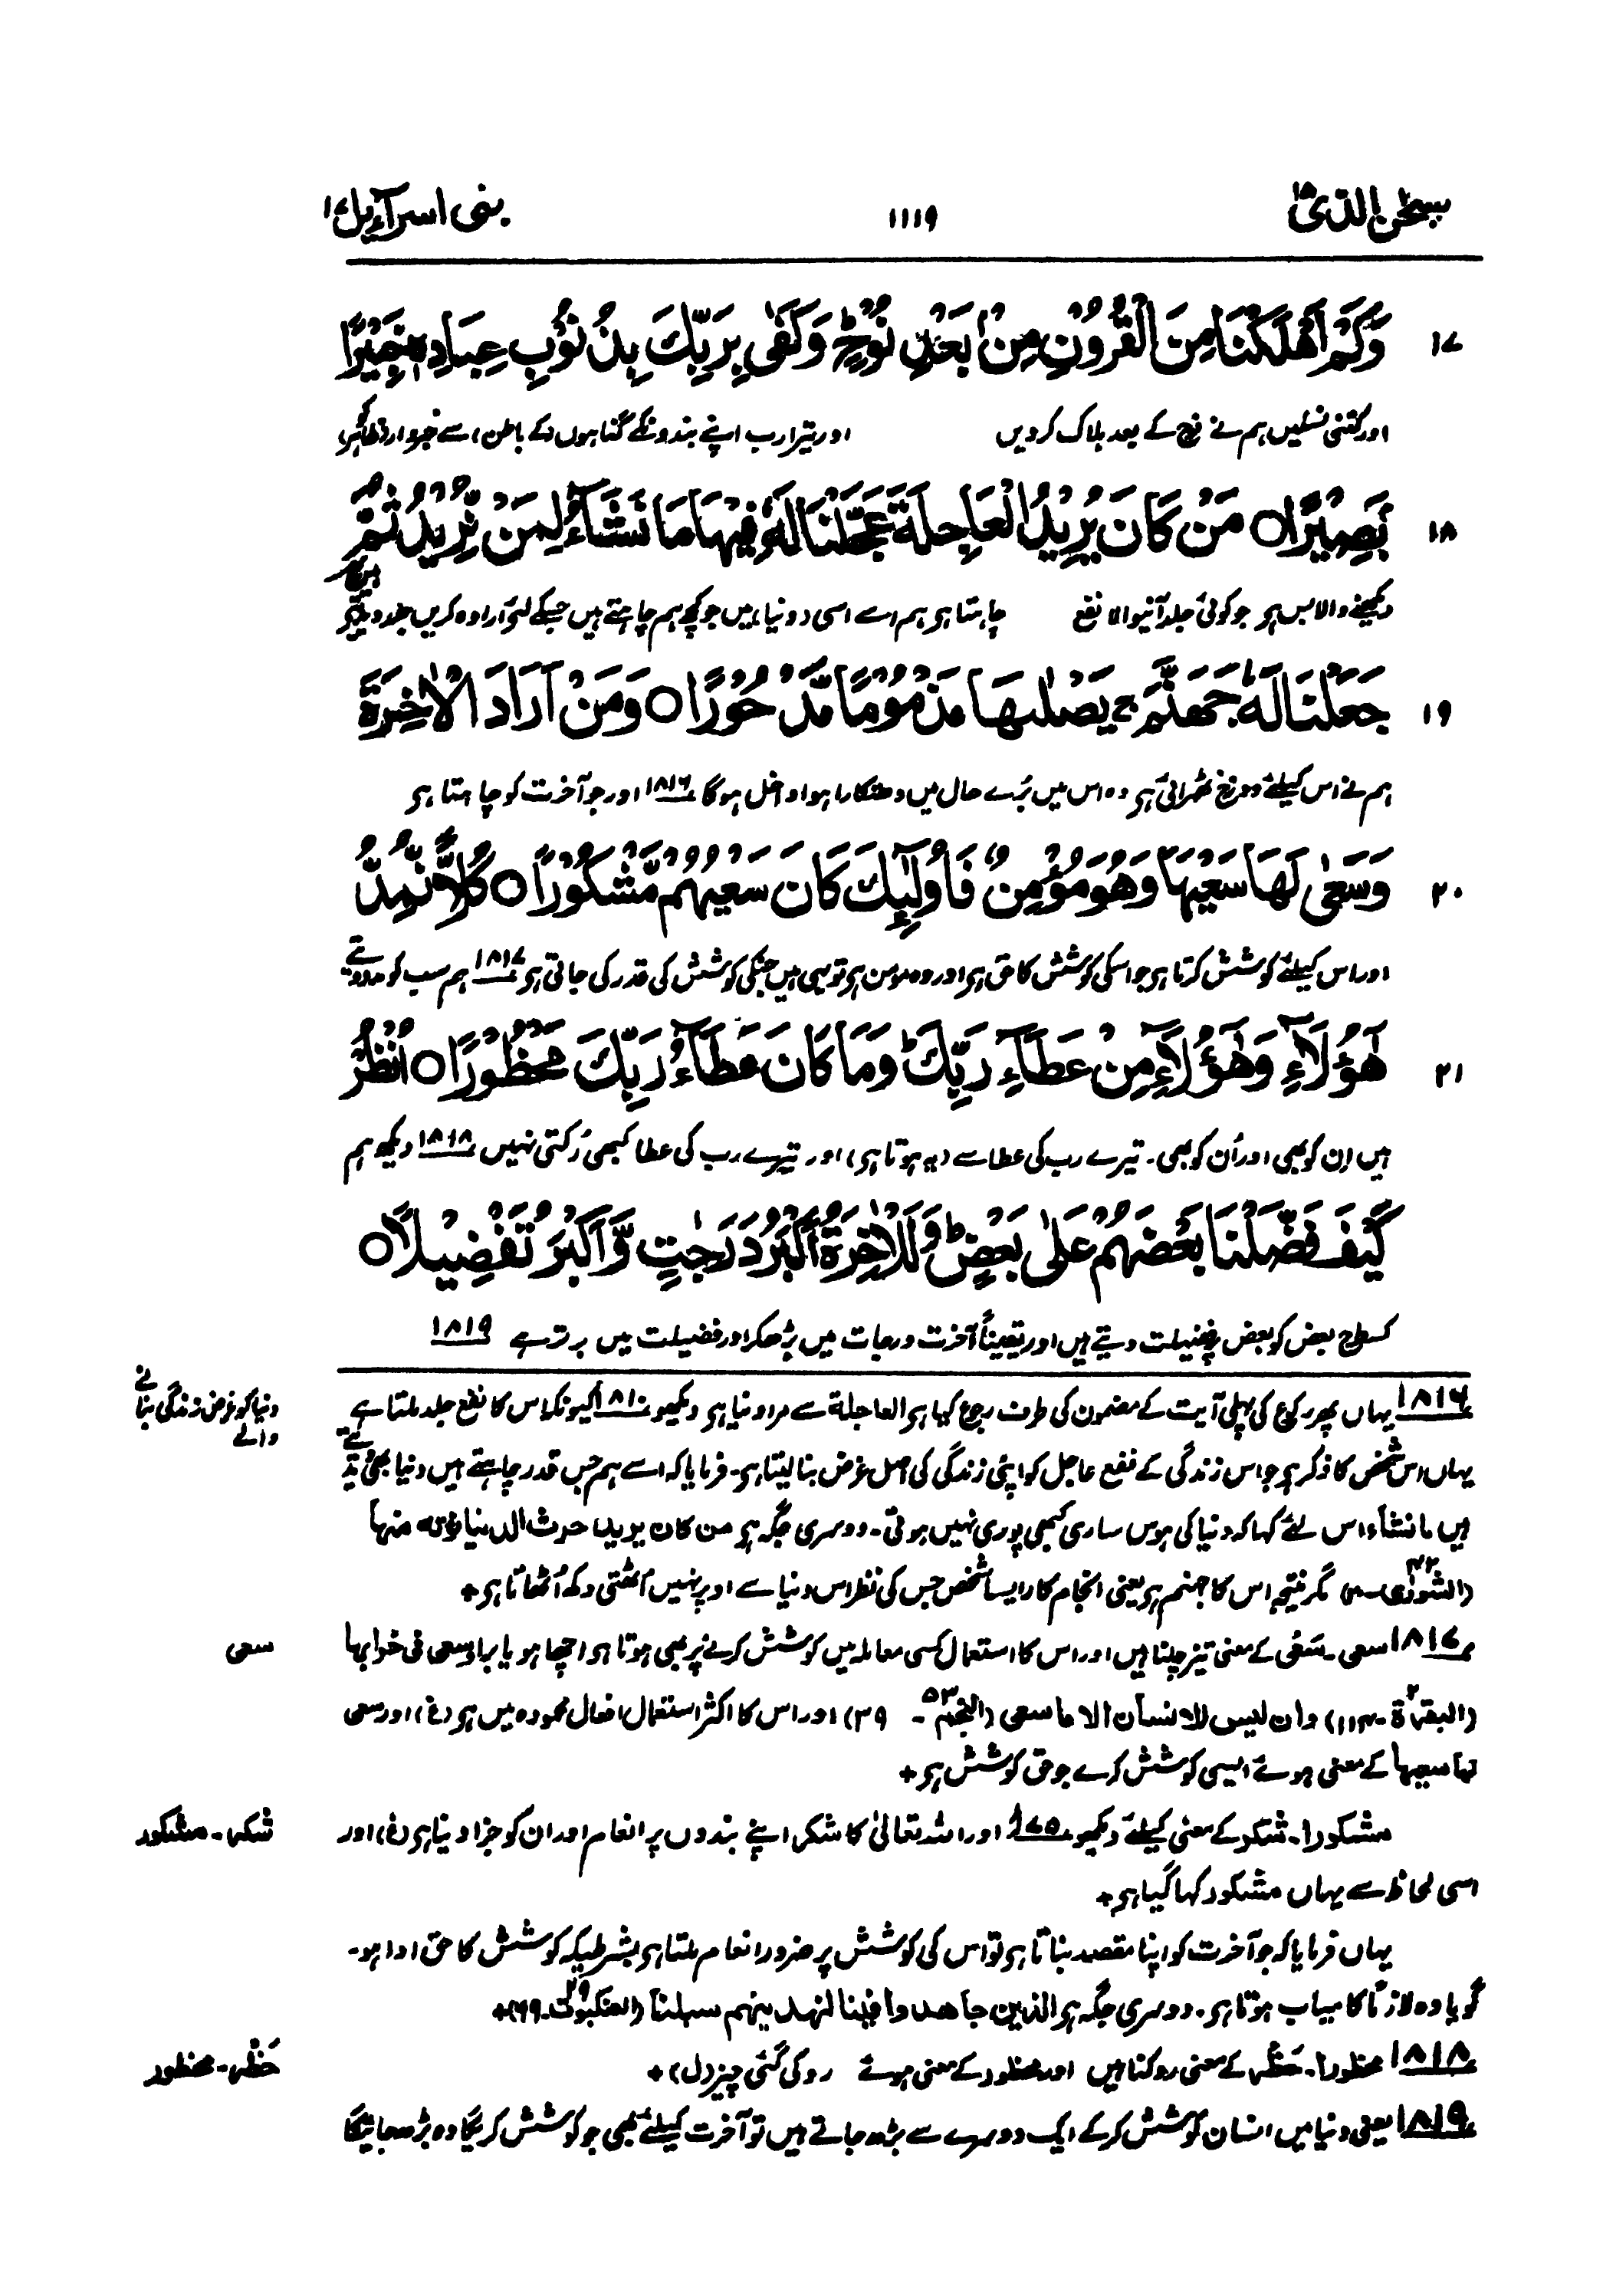 سبحٰن الذی ۱۵ ۱۱۱۹ بنی اسرآءیل ۱۷
۱۷ وَكَمْ اَهْلَكْنَا مِنَ الْقُرُوْنِ مِنْۢ بَعْدِ نُوْحٍ ؕ وَكَفٰى بِرَبِّكَ بِذُنُوْبِ عِبَادِهٖ خَبِيْرًۢا
اور کتنی نسلیں ہم نے نوح کے بعد ہلاک کردیں اور تیرا رب اپنے بندونکے گناہوں (کے باطن) سے خبردار (ظاہر) کو
۱۸ بَصِيْرًا ○ مَنْ كَانَ يُرِيْدُ الْعَاجِلَةَ عَجَّلْنَا لَهٗ فِيْهَا مَا نَشَآءُ لِمَنْ نُّرِيْدُ ثُمَّ
دیکھنے والا بس ہو جو کوئی جلد آنیوالا نفع چاہتا ہو ہم اسے اسی (دنیا) میں جو کچھ ہم چاہتے ہیں جسکے لئے ارادہ کریں جلد دیتے ہیں پھر
۱۹ جَعَلْنَا لَهٗ جَهَنَّمَ ۚ يَصْلٰىهَا مَذْمُوْمًا مَّدْحُوْرًا ○ وَمَنْ اَرَادَ الْاٰخِرَةَ
ہم نے اس کیلئے دوزخ ٹھہرائی ہو وہ اس میں بُرے حال میں دھتکارا ہوا داخل ہوگا ۱۸۱۶ اور جو آخرت کو چاہتا ہو
۲۰ وَسَعٰى لَهَا سَعْيَهَا وَهُوَ مُؤْمِنٌ فَاُولٰٓئِكَ كَانَ سَعْيُهُمْ مَّشْكُوْرًا ○ كُلًّا نُّمِدُّ
اور اس کیلئے کوشش کرتا ہو جو اسکی کوشش کا حق ہو اور وہ مومن ہو تو یہی ہیں جنکی کوشش کی قدر کی جاتی ہو ۱۸۱۷ ہم سب کو مدد دیتے
۲۱ هٰٓؤُلَآءِ وَهٰٓؤُلَآءِ مِنْ عَطَآءِ رَبِّكَ ؕ وَمَا كَانَ عَطَآءُ رَبِّكَ مَحْظُوْرًا ○ اُنْظُرْ
ہیں اِن کو بھی اور اُن کو بھی۔ تیرے رب کی عطا سے (یہ ہوتا ہو) اور تیرے رب کی عطا کبھی رُکتی نہیں ۱۸۱۸ دیکھ ہم
كَيْفَ فَضَّلْنَا بَعْضَهُمْ عَلٰى بَعْضٍ ؕ وَلَلْاٰخِرَةُ اَكْبَرُ دَرَجٰتٍ وَّاَكْبَرُ تَفْضِيْلًا ○
کسطرح بعض کو بعض پر فضیلت دیتے ہیں اور یقیناً آخرت درجات میں بڑھکر اور فضیلت میں برتر ہے ۱۸۱۹
۱۸۱۶ یہاں پھر رکوع کی پہلی آیت کے مضمون کی طرف رجوع کیا ہو العاجلة سے مراد دنیا ہو دیکھو ۱۸۱۰ کیونکہ اس کا نفع جلد ملتا ہے
دنیا کو غرض زندگی بنانے والے
یہاں اس شخص کا ذکر ہو جو اس زندگی کے نفع عاجل کو اپنی زندگی کی اصل غرض بنا لیتا ہو۔ فرمایا کہ اسے ہم جس قدر چاہتے ہیں دنیا بھی دیتے
ہیں مانشاء اس لئے کہا کہ دنیا کی ہوس ساری کبھی پوری نہیں ہوتی۔ دوسری جگہ ہو من کان یرید حرث الدنیا نؤته منها
(الشوریٰ ۴۲-۲۰) مگر نتیجہ اس کا جہنم ہو یعنی انجام کار ایسا شخص جس کی نظر اس دنیا سے اوپر نہیں اٹھتی دکھ اُٹھاتا ہو +
۱۸۱۷ سعی۔ سَعْی کے معنی تیز چلنا ہیں اور اس کا استعمال کسی معاملہ میں کوشش کرنے پر بھی ہوتا ہو اچھا ہو یا برا وسعی فی خرابها
سعی
(البقرة ۲-۱۱۴) وان لیس للانسان الا ما سعی (النجم ۵۳- ۳۹) اور اس کا اکثر استعمال افعال محمودہ میں ہو (غ) اور سعی
لها سعیها کے معنی ہوئے ایسی کوشش کرے جو حق کوشش ہو +
مشکورا۔ شکر کے معنی کیلئے دیکھو ۱۷۵ اور اللہ تعالیٰ کا شکر اپنے بندوں پر انعام اور ان کو جزا دینا ہو (غ) اور
شکر۔ مشکور
اسی لحاظ سے یہاں مشکور کہا گیا ہو +
یہاں فرمایا کہ جو آخرت کو اپنا مقصد بناتا ہو تو اس کی کوشش پر ضرور انعام ملتا ہو بشرطیکہ کوشش کا حق ادا ہو۔
گویا وہ لازماً کامیاب ہوتا ہو۔ دوسری جگہ ہو الذین جاهدوا فینا لنهدینهم سبلنا (العنکبوت ۲۹-۶۹) +
۱۸۱۸ محظورا۔ حَظْر کے معنی روکنا ہیں اور محظور کے معنی ہوئے روکی گئی چیز (ل) +
حَظْر۔ محظور
۱۸۱۹ یعنی دنیا میں انسان کوشش کرکے ایک دوسرے سے بڑھ جاتے ہیں تو آخرت کیلئے بھی جو کوشش کریگا وہ بڑھ جائیگا